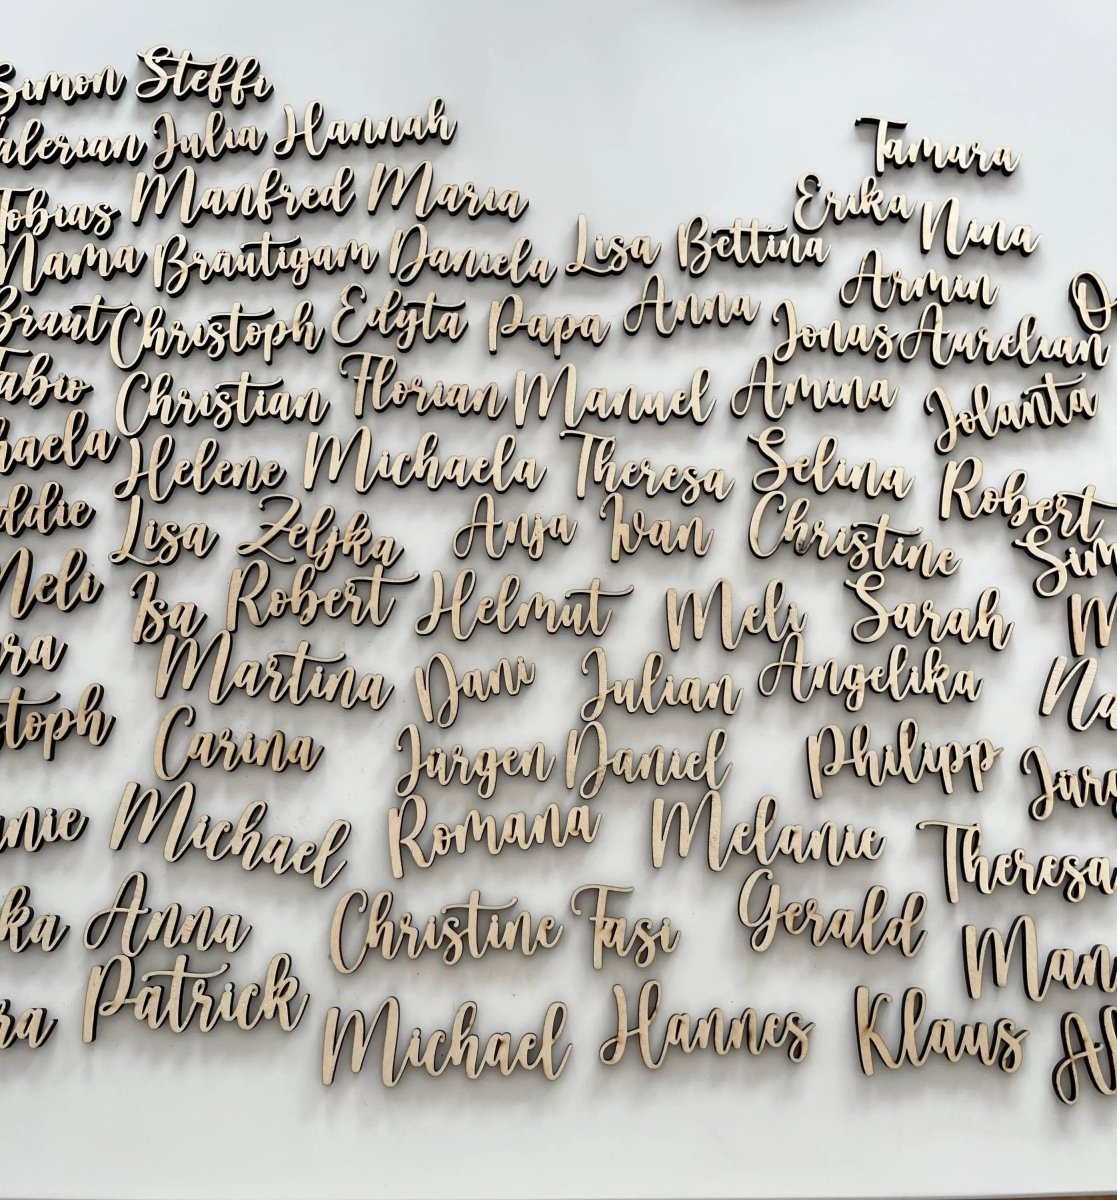 Simon Steffi
Valerian Julia Hannah
Tamara
Tobias Manfred Maria
Erika Nina
Mama Bräutigam Daniela Lisa Bettina
Armin
Braut Christoph Edyta Papa Anna
Jonas Aurelian
Fabio Christian Florian Manuel Amina Jolanta
haela Helene Michaela Theresa Selina Robert
ddie Lisa Zeljka Anja Ivan Christine Sim
Meli Isa Robert Helmut Meli Sarah M
ra Martina Dani Julian Angelika Na
stoph Carina Jürgen Daniel Philipp Jürg
anie Michael Romana Melanie Theresa
ka Anna Christine Fasi Gerald Man
ra Patrick Michael Hannes Klaus